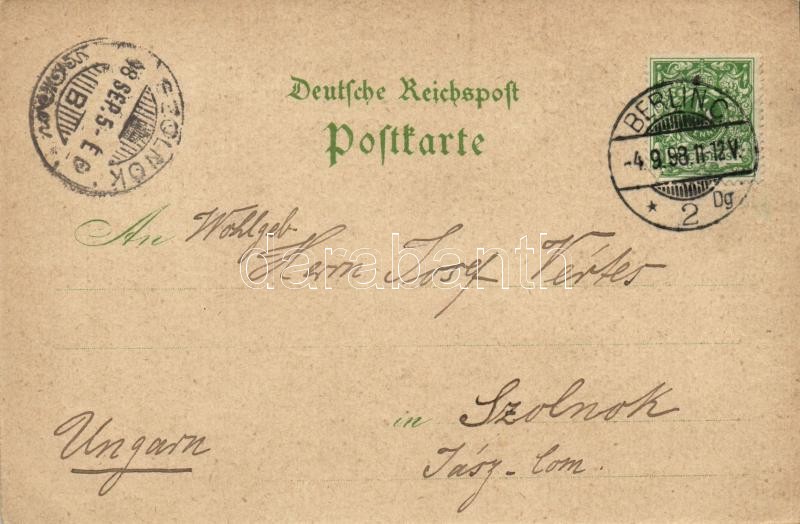 Deutsche Reichspost
Postkarte
BERLIN C.
-4.9.98.11-12V.
* 2 Dg
SZOLNOK
98 SEP. 5-
B
An Wohlgeb.
Herrn Josef Vértes
in Szolnok
Jász-Com.
Ungarn
darabanth